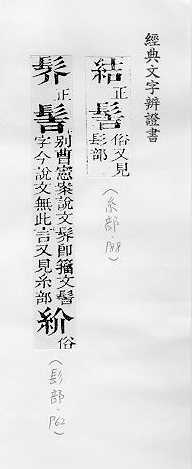 經典文字辨證書
結正髻俗又見
髟部
(糸部·P88)
䯰正髻別曹憲案說文䯰即籀文髻
字今說文無此言又見糸部
紒俗
(髟部·P62)